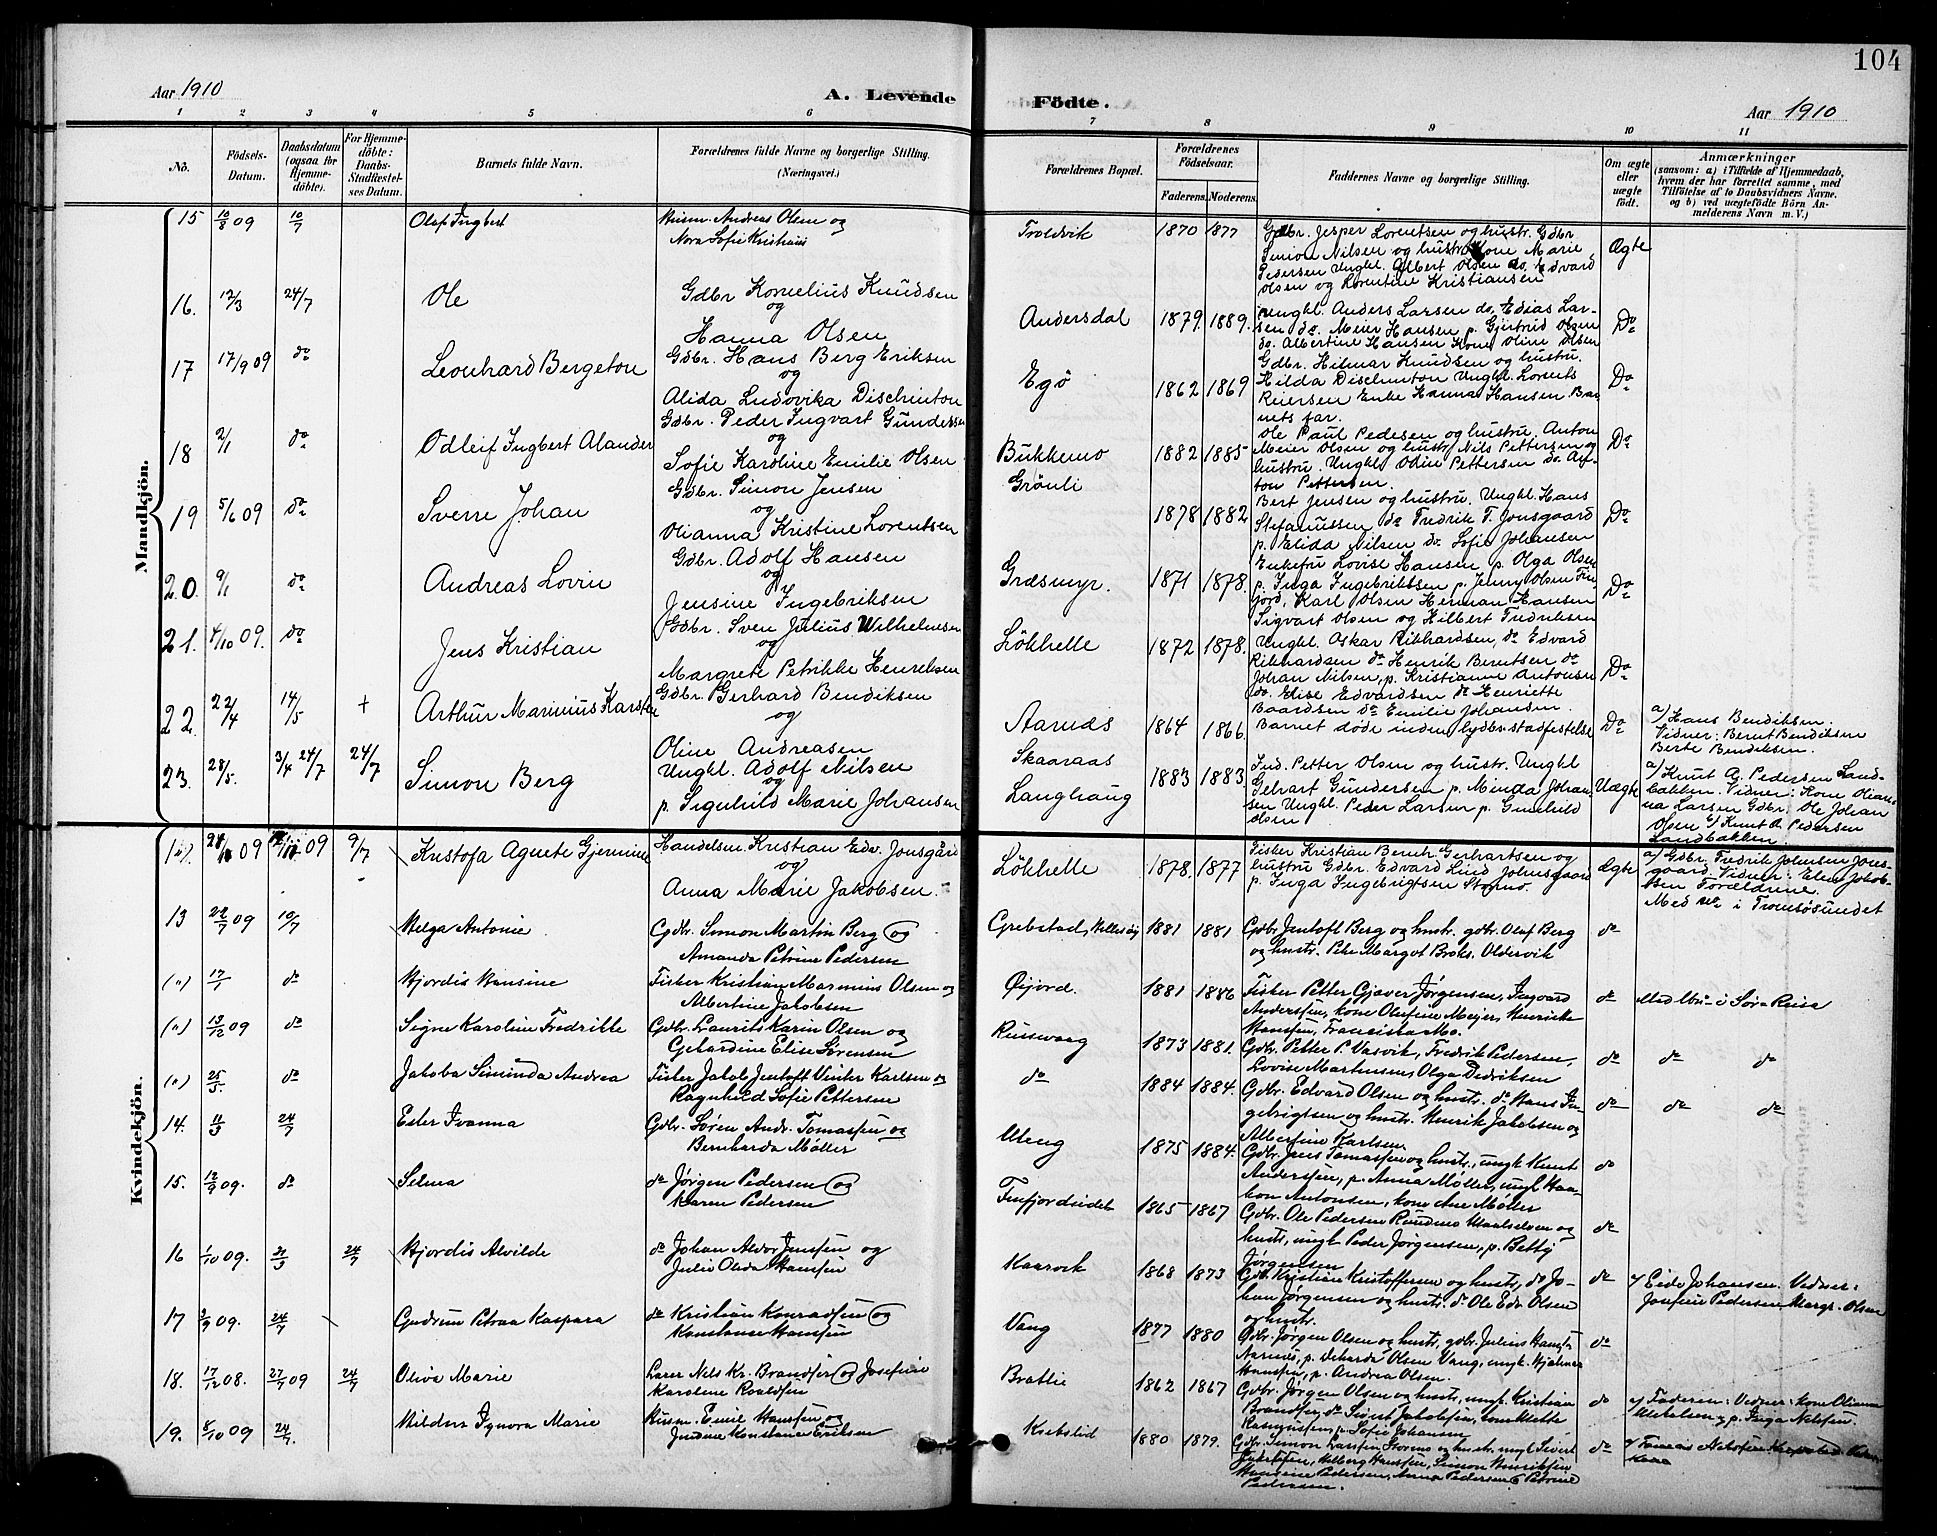 104
Aar 1910
A. Levende
Födte.
Aar 1910
1 2 3 4 5 6 7 8 9 10 11
No.
Födsels-
Datum.
Daabsdatum
(ogsaa for
Hjemme-
döbte).
For Hjemme-
döbte:
Daabs-
Stadfestel-
ses Datum.
Barnets fulde Navn.
Forældrenes fulde Navne og borgerlige Stilling.
(Næringsvei.)
Forældrenes Bopæl.
Forældrenes
Födselsaar.
Faderens.
Moderens.
Faddernes Navne og borgerlige Stilling.
Om ægte
eller
uægte
födt.
Anmærkninger
(saasom: a) i Tilfælde af Hjemmedaab,
hvem der har forrettet samme, med
Tilföielse af to Daabsvidners Navne.
og b) ved uægtefödte Börn An-
melderens Navn m. V.)
Mandkjön.
15 10/8 09 10/7 Olaf Ingbert
Husm. Andreas Olsen og
Nora Sofie Kristians
Troldvik 1870 1877
Gdbr. Jesper Lorentsen og hustr. Gdbr
Simon Nilsen og hustru Kone Marie
Pedersen Ungkl. Albert Olsen do. Edvard
Olsen og Lorentine Kristiansen
Ægte
16. 12/3 24/7 Ole
Gdbr Kornelius Knudsen
og
Hanna Olsen
Andersdal 1879. 1889.
Ungkl. Anders Larsen do. Edias Lar-
sen do. Meier Hansen p. Gjertrud Olsen
do. Albertine Hansen Kone Oline Olsen
Do
17 17/9 09 do Leonhard Bergeton
Gdbr. Hans Berg Eriksen
og
Alida Ludovika Dischinton
Egö 1862 1869
Gdbr. Hilmar Knudsen og hustru.
Hilda Dischinton Ungkl. Lorents
Reiersen Enke Hanna Hansen Bar
nets far.
Do
18 2/1 do Odleif Ingbert Alander
Gdbr. Peder Ingvart Gundersen
og
Sofie Karoline Emilie Olsen
Bukkemo 1882 1885
Ole Paul Pedesen og hustru, Anton
Meier Olsen og hustr. Nils Pettersen og
hustru. Ungkl. Odin Pettersen do. An-
ton Pettersen.
Do
19 5/6 09 do Sverre Johan
Gdbr. Simon Jensen
og
Olianna Kristine Lorentsen
Grönli 1878 1882
Bert Jensen og hustru. Ungkl. Hans
Stefanussen do Fredrik T. Jonsgaard
p. Elida Nilsen do. Sofie Johansen
Do
20. 9/1 do Andreas Lovin
Gdbr. Adolf Hansen
og
Jensine Ingebriksen
Græsmyr. 1871 1878.
Enkefru Lovise Hansen p. Olga Olsen
p. Inga Ingebriktsen p. Jenny Olsen Fin-
fjord, Karl Olsen Herman Hansen
Sigvart Olsen og Hilbert Fredriksen
Do
21. 4/10 09. do Jens Kristian
Gdbr. Sven Julius Wilhelmsen
og
Margrete Petrikke Henriksen
Lökhelle 1872 1878.
Ungkl. Oskar Rikhardsen, do Edvard
Rikhardsen do Henrik Berntsen do
Johan Nilsen, p. Kristianne Antonsen
do. Elise Edvardsen do Henriette
Baardsen do Emilie Johansen.
Do
22. 22/4 14/5 + Arthur Marinius Karsten
Gdbr. Gerhard Bendiksen
og
Oline Andreasen
Aarnæs 1864 1866.
Barnet döde inden stadfestelse
Do
a) Hans Bendiksen.
Vidner: Bernt Bendiksen
Berte Bendiksen.
23. 28/5. 3/4 24/7 24/7 Simon Berg
Ungkl. Adolf Nilsen
og
p. Signhild Marie Johansen
Skaaraas
Langhaug
1883 1883.
Ind. Petter Olsen og hustr. Ungkl
Gelvart Gundersen p. Minda Johan
sen Ungkl. Peder Larsen p. Gunhild
Olsen
Uægte
a) Knut A. Pedersen Land-
bakken. Vidner: Kone Olian-
na Larsen Gdbr. Ole Johan
Olsen b) Knut A. Pedersen
Landbakken.
Kvindekjön.
Kristofa Agnete Gjermine 9/7
Handelsm. Kristian Edv. Jonsgård
og
Anna Marie Jakobsen.
Lökhelle 1878. 1877
Fisker Kristian Bernh. Gerhartsen og
hustru Gdbr. Edvard Lind Johnsgaard
p. Inga Ingebrigtsen Stormo.
Ægte
a) Gdbr. Fredrik Johnsen Jons-
gaard. Vidner: Elen Jakob-
sen Forældrene.
Med No i Tromsösundet
13 22/7 09 10/7 Helga Antonie
Gdbr. Simon Martin Berg og
Amanda Petrine Pedersen
Grebstad, Hellesöy 1881 1881
Gdbr Jentoft Berg og hustr. gdbr. Olaf Berg
og hustr. Pike Margot Broks. Oldervik
do
(") 17/1 do Hjördis Hansine
Fisker Kristian Marinius Olsen og
Albertine Jakobsen
Öijord. 1881 1886
Fisker Petter Gjæver Jörgensen, Ingvard
Anderssen, kone Olufine Meijer, Henriette
Hanssen, Franciska Mo.
do
Med Nr. i Söre Reisa
(") 13/12 09 do Signe Karoline Fredrikke
Gdbr. Laurits Karin Olsen og
Gerhardine Elise Sörensen
Russevaag 1873 1881.
Gdbr. Petter P. Vasvik, Fredrik Pedersen,
Lovise Martinsen, Olga Dedriksen
do do do
(") 25/5. do Jakoba Siminda Andrea
Fisker Jakob Jentoft Vinter Karlsen og
Ragnhild Sofie Pettersen
do 1884 1884.
Gdbr. Edvard Olsen og hustr. do Hans In-
gebrigtsen og hustr. Henrik Jakobsen og
Albertine Karlsen.
do do do
14. 11/3 24/7 Ester Ivanna
Gdbr. Sören Andr. Tomassen og
Bernharda Möller
Meng 1875 1884.
Gdbr. Jens Tomassen og hustr., ungk. Knut
Anderssen, p. Anna Möller, ungk. Haa-
kon Antonsen, kone Ane Möller
do
15. 12/9 09. do Selma
do Jörgen Pedersen og
Karen Pedersen
Finfjordeidet 1865 1867
Gdbr. Ole Pedersen Rundmo Maalselven og
hustr., ungk. Peder Jörgensen, p. Betty
Jörgensen
do
16 1/10 09. 21/3 24/7 Hjördis Alvilde
do Johan Aldor Jenssen og
Julie Olida Hanssen
Kaarvik 1868 1873
Gdb. Kristian Kristoffersen og hustr., do Jo-
han Jörgensen og hustr. do Ole Edv. Olsen
og hustr.
do
a/ Eide Johansen. Vidner:
Josefine Pedersen Margr. Olsen
17 2/9 09. 24/7 Gudrun Petraa Kaspara
do Kristian Konradsen og
Konstanse Hanssen
Vang 1877 1880
Gdbr. Jörgen Olsen og hustr., gdbr. Julius Hansen
Aarnes, p. Dekarda Olsen Vang, ungk. Hjalmar
Hanssen, p. Andrea Olsen.
do
18. 17/12 08. 27/7 09 24/7 Oliva Marie
Lærer Nels Kr. Brandser og Josefine
Karoline Roaldsen
Bratlie 1862 1867
Gdbr. Jörgen Olsen og hustr., ungk. Kristian
Brandsen, do Sigurd Jakobsen, kone Mette
Rasmussen, p. Sofie Johansen
do
a/ Faderen: Vedner: kone Olianna
Mikalsen, p. Inga Nilssen.
19. 8/10 09 24/7. Hildur Ignora Marie
Husm. Emil Hanssen og
Jensine Konstanse Eriksen
Krekslid 1880 1879.
Gdbr. Simon Larssen Stormo og hustr. ungk. Sivert
Jakobsen, Helberg Hanssen, Simon Henriksen
Hansine Pedersen, Anna Pedersen og Petrine
Pedersen.
do